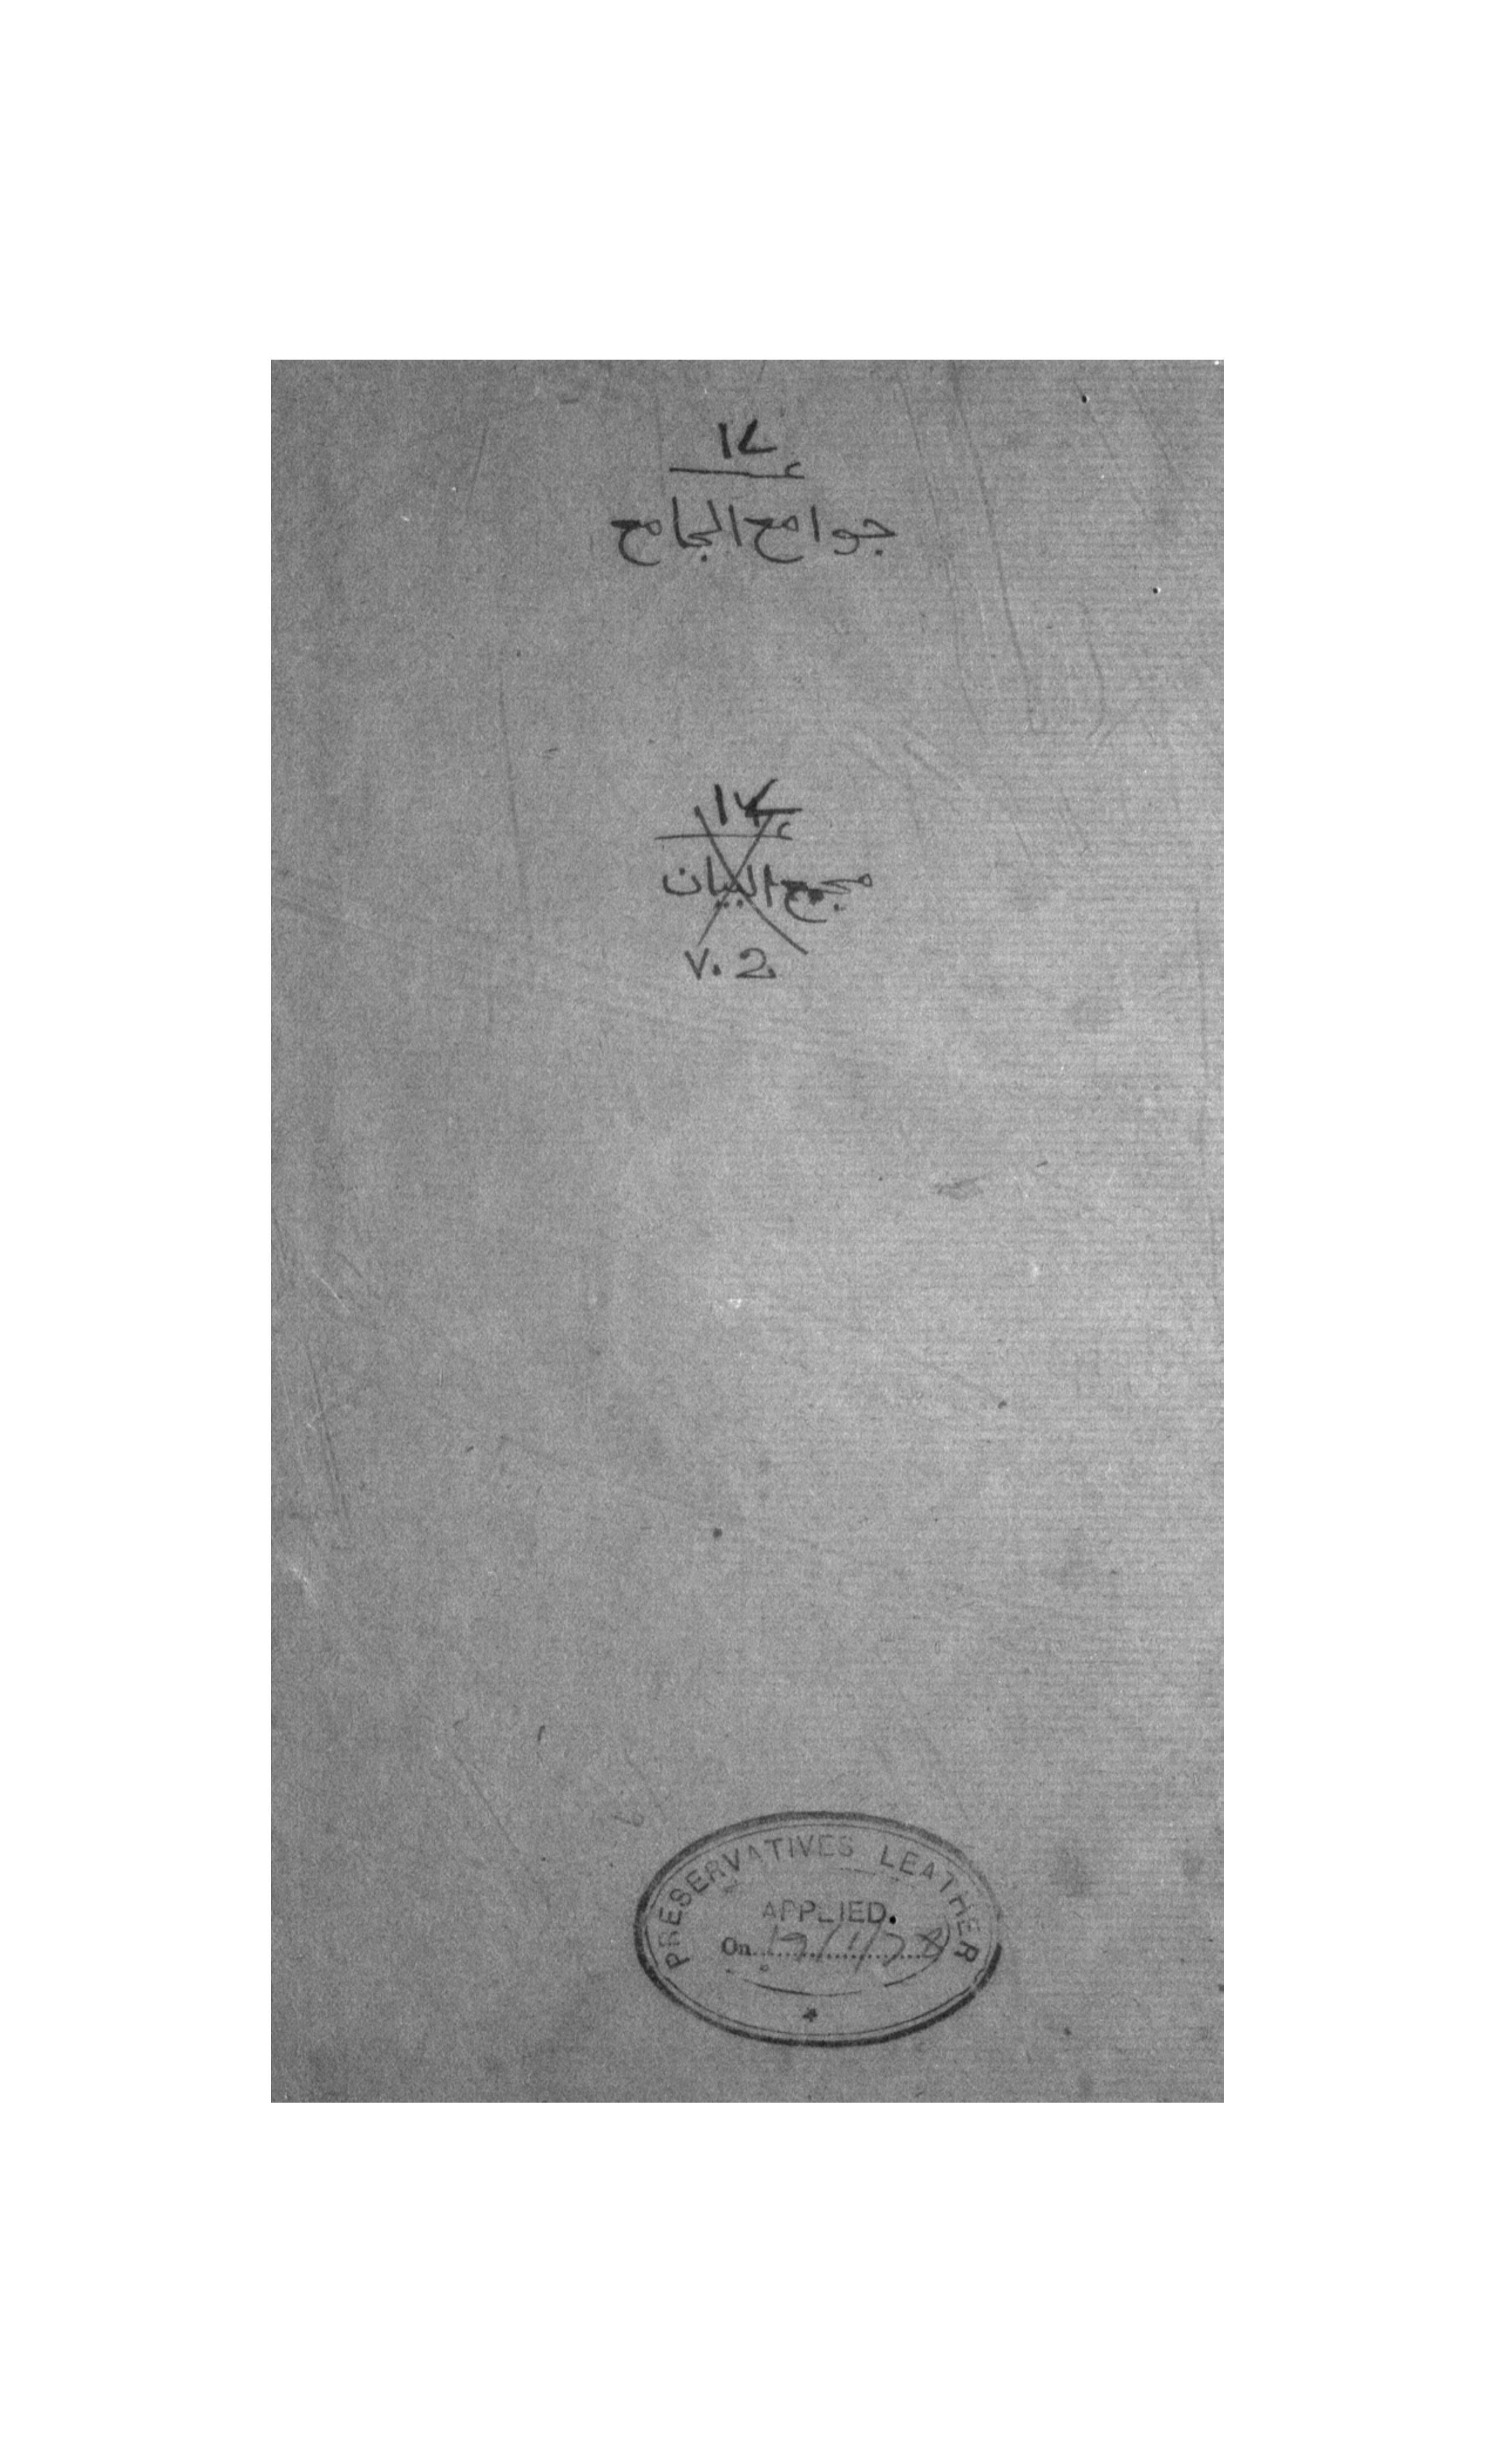 ١٧
جوامع الجامع
١٧
مجمع البيان
V. 2
PRESERVATIVES LEATHER
APPLIED.
On